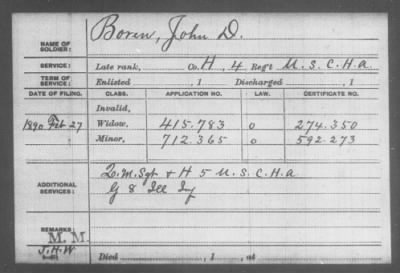 NAME OF SOLDIER: Boren, John D.
SERVICE: Late rank, Co. H, 4 Reg't U.S.C.H.A.
TERM OF SERVICE: Enlisted , 1 Discharged , 1
DATE OF FILING. CLASS. APPLICATION NO. LAW. CERTIFICATE NO.
Invalid,
1890 Feb 27 Widow, 415.783 O 274.350
Minor, 712.365 O 592.273
ADDITIONAL SERVICES: Q.M. Sgt & H 5 U.S.C.H.A.
G 8 Ill Inf
REMARKS:
M. M.
J.H.W
Died , 1 , at